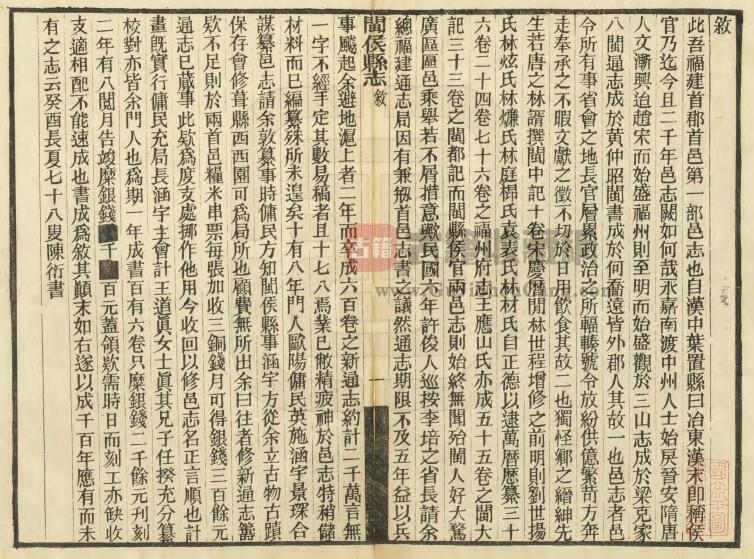 敘
此吾福建首郡首邑第一部邑志也自漢中葉置縣曰冶東漢末即稱侯
官乃迄今且二千年邑志闕如何哉永嘉南渡中州人士始戾晉安隋唐
人文漸興迨趙宋而始盛福州則至明而始盛觀於三山志成於梁克家
八閩通志成於黃仲昭閩書成於何喬遠皆外郡人其故一也邑志者邑
令所有事省會之地長官層累政治之所輻輳號令放紛供億繁苛方奔
走奉承之不暇文獻之徵不切於日用飲食其故二也獨怪鄉之縉紳先
生若唐之林諝撰閩中記十卷宋慶曆閒林世程增修之前明則劉世揚
氏林炫氏林燫氏林庭㭿氏袁表氏林材氏自正德以逮萬曆歷纂三十
六卷二十四卷七十六卷之福州府志王應山氏亦成五十五卷之閩大
記三十三卷之閩都記而閩縣侯官兩邑志則始終無聞殆閩人好大騖
廣區區邑乘舉若不屑措意歟民國九年許俊人巡按李培之省長請余
總福建通志局因有兼剏首邑志書之議然通志期限不及五年益以兵
閩侯縣志
敘
一
事颷起余避地滬上者二年而卒成六百卷之新通志約計二千萬言無
一字不經手定其數易稿者且十七八焉業已敝精疲神於邑志特稍儲
材料而已編纂殊所未遑矣十有八年門人歐陽傭民英施涵宇景琛合
謀纂邑志請余敦纂事時傭民方知閩侯縣事涵宇方從余立古物古蹟
保存會修葺縣西西園可爲局所也顧費無所出余曰往者修新通志籌
欵不足則於兩首邑糧米串票每張加收三銅錢月可得銀錢三百餘元
通志已蕆事此欵爲度支處挪作他用今收回以修邑志名正言順也計
畫旣實行傭民充局長涵宇主會計王道眞女士眞其兄子任揆充分纂
校對亦皆余門人也爲期一年成書百有六卷只糜銀錢二千餘元刋刻
二年有八閱月告竣糜銀錢 千 百元蓋領欵需時日而刻工亦缺收
支適相配不能速成也書成爲敘其顛末如右遂以成千百年應有而未
有之志云癸酉長夏七十八叟陳衍書